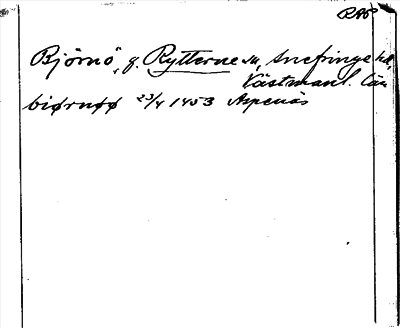 RAP
Björnö, g. Rytterne sn, Snefringe hd,
Västmanl. län
biørnøø 23/4 1453 Aspenäs